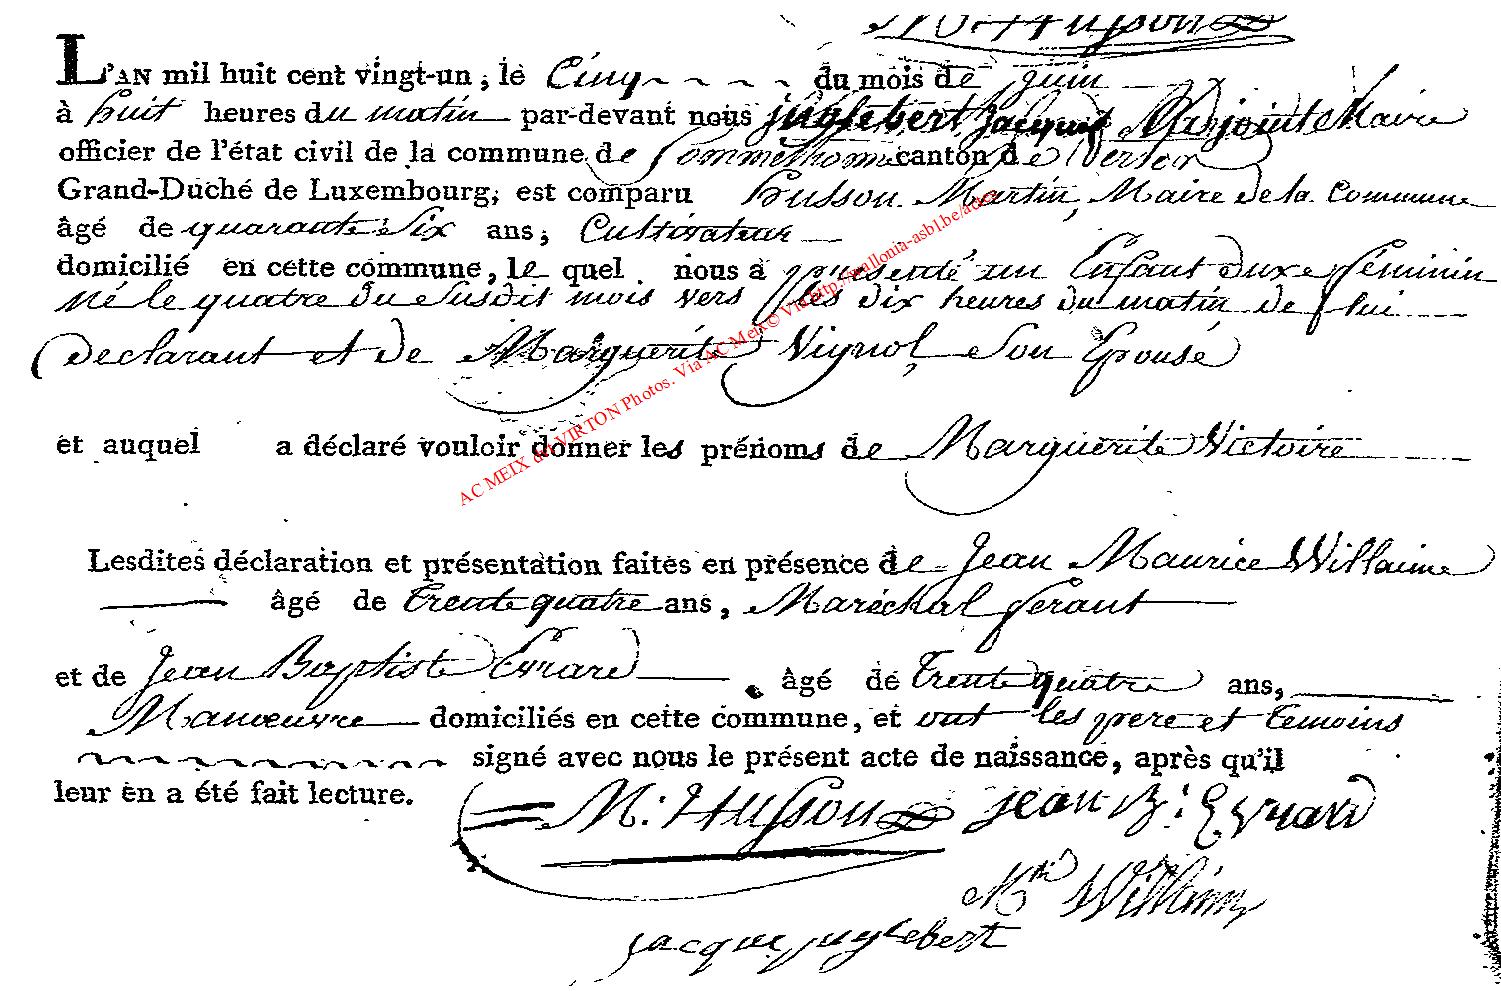 M. Husson
L'AN mil huit cent vingt-un, le Cinq du mois de juin
à huit heures du matin par-devant nous juglebert jacque adjoint Maire
officier de l'état civil de la commune de Sommethonne canton de Virton
Grand-Duché de Luxembourg, est comparu Husson Martin, Maire de la Commune
âgé de quarante Six ans, Cultivateur
domicilié en cette commune, le quel nous a présenté un Enfant du xe féminin
Né le quatre du Susdit mois vers les dix heures du matin de lui
declarant et de Marguerite Vignol son Epouse
et auquel a déclaré vouloir donner les prénoms de Marguerite Victoire
AC MEIX dvt VIRTON Photos. Via AC Meix© Via http://wallonia-asbl.be/adex
Lesdites déclaration et présentation faites en présence de Jean Maurice Willaime
âgé de trente quatre ans, Maréchal ferant
et de Jean Baptiste Evrard âgé de trente quatre ans,
Manoeuvre domiciliés en cette commune, et ont les pere et temoins
signé avec nous le présent acte de naissance, après qu'il
leur en a été fait lecture.
M: Husson jean B: Evrard
Willaim
jacque juglebert